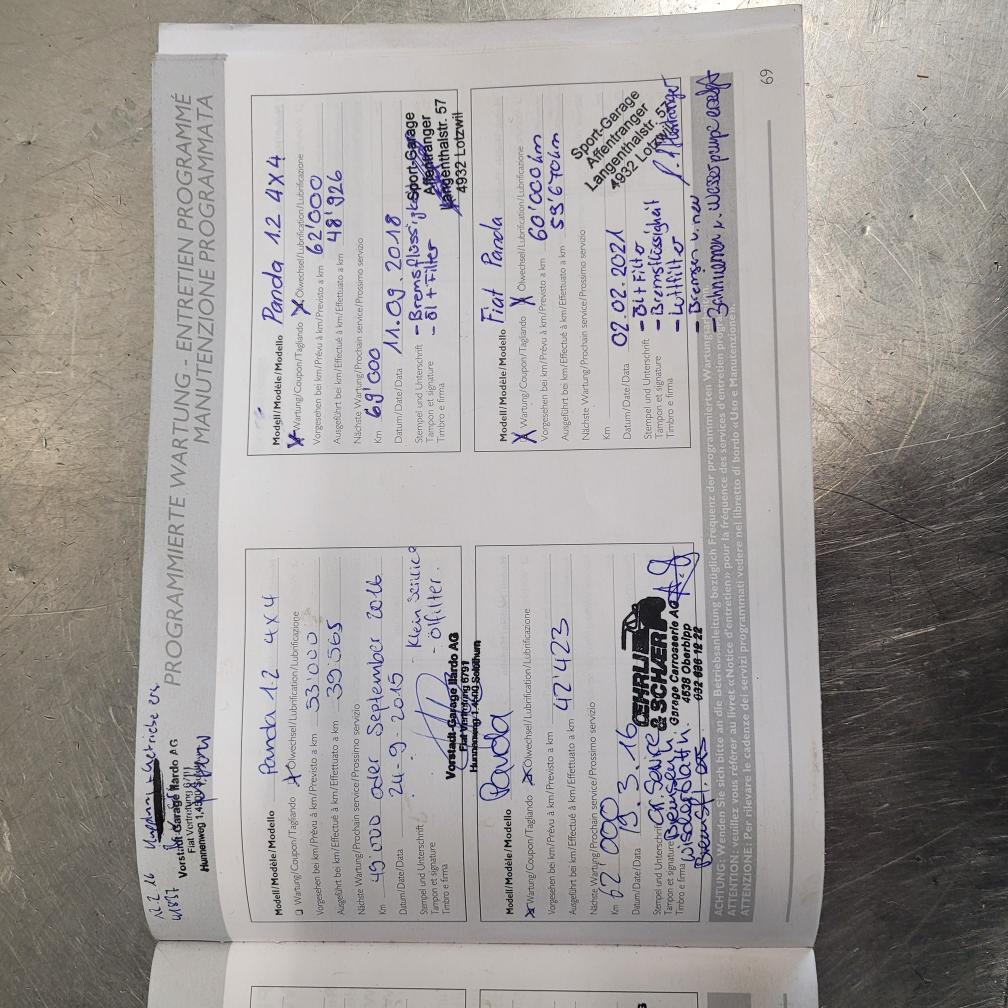 12.2.16
41837
Vorstadt-Garage Ilardo AG
Fiat Vertretung 6791
Hunnenweg 1,4500 Solothurn
PROGRAMMIERTE WARTUNG - ENTRETIEN PROGRAMMÉ
MANUTENZIONE PROGRAMMATA
Modell/Modèle/Modello Panda 1.2 4x4
Wartung/Coupon/Tagliando X Ölwechsel/Lubrification/Lubrificazione
Vorgesehen bei km/Prévu à km/Previsto a km 53'000
Ausgeführt bei km/Effectué à km/Effettuato a km 39'565
Nächste Wartung/Prochain service/Prossimo servizio
Km 49'000 oder September 2016
Datum/Date/Data 24-9-2015
Stempel und Unterschrift
Tampon et signature
Timbro e firma
Klein Service
- Ölfilter.
Vorstadt-Garage Ilardo AG
Fiat Vertretung 6791
Hunnenweg 1,4500 Solothurn
Modell/Modèle/Modello Panda 1.2 4x4
X Wartung/Coupon/Tagliando X Ölwechsel/Lubrification/Lubrificazione
Vorgesehen bei km/Prévu à km/Previsto a km 62'000
Ausgeführt bei km/Effectué à km/Effettuato a km 48'926
Nächste Wartung/Prochain service/Prossimo servizio
Km 69'000
Datum/Date/Data 11.09.2018
Stempel und Unterschrift
Tampon et signature
Timbro e firma
- Bremsflüssigkeit
- Öl + Filter
Sport-Garage
Affentranger
Langenthalstr. 57
4932 Lotzwil
Modell/Modèle/Modello Panda
X Wartung/Coupon/Tagliando X Ölwechsel/Lubrification/Lubrificazione
Vorgesehen bei km/Prévu à km/Previsto a km
Ausgeführt bei km/Effectué à km/Effettuato a km 47'423
Nächste Wartung/Prochain service/Prossimo servizio
Km 62'000
Datum/Date/Data 18.3.16
Stempel und Unterschrift
Tampon et signature
Timbro e firma
Gr. Service
Bremsen h.
Bremsfl.
OEHRLI
& SCHÄER
Garage Carrosserie AG
4538 Oberbipp
032 636 12 22
Modell/Modèle/Modello Fiat Panda
X Wartung/Coupon/Tagliando X Ölwechsel/Lubrification/Lubrificazione
Vorgesehen bei km/Prévu à km/Previsto a km 60'000 km
Ausgeführt bei km/Effectué à km/Effettuato a km 53'670 km
Nächste Wartung/Prochain service/Prossimo servizio
Km
Datum/Date/Data 02.02.2021
Stempel und Unterschrift
Tampon et signature
Timbro e firma
- Öl + Filter
- Bremsflüssigkeit
- Luftfilter
- Bremsen v. neu
- Zahnriemen u. Wasserpumpe ersetzt
Sport-Garage
Affentranger
Langenthalstr. 57
4932 Lotzwil
ACHTUNG: Wenden Sie sich bitte an die Betriebsanleitung bezüglich Frequenz der programmierten Wartungs
ATTENTION: veuillez vous référer au livret «Notice d'entretien» pour la fréquence des services d'entretien
ATTENZIONE: Per rilevare le cadenze dei servizi programmati vedere nel libretto di bordo «Uso e Manutenzione».
69